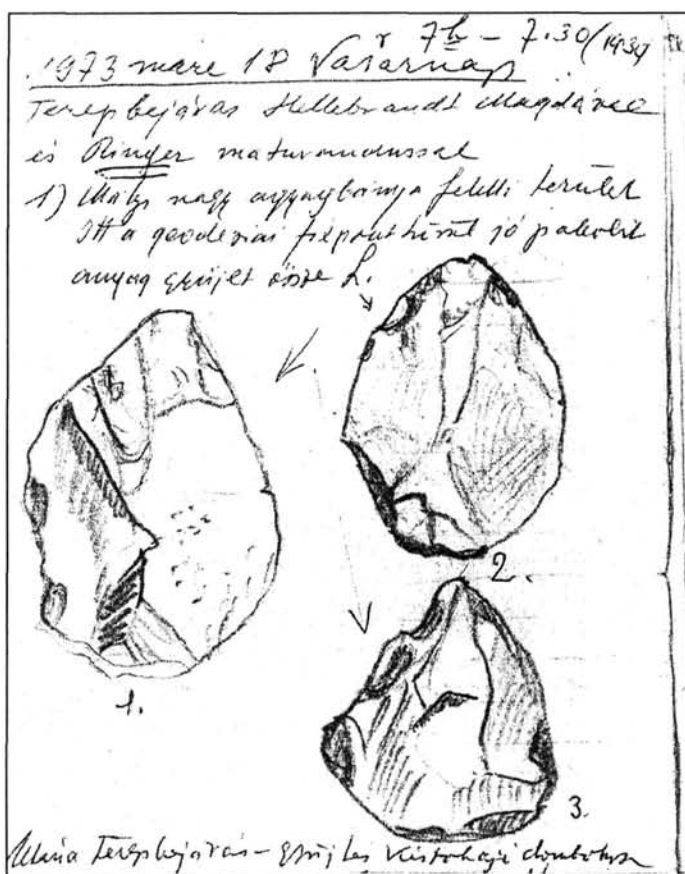 r 7h – 7.30 (1930)
1973 márc 18 Vasárnap
Terepbejárás Hellebrandt Magdával
és Ringer maturandussal
1) Mályi nagy agyagbánya feletti terület
Itt a geodéziai fixpont körül jó paleolit
anyag gyűjlt össze L.
1.
2.
3.
Utána Terepbejárás – gyűjtés Kistokaji dombokon